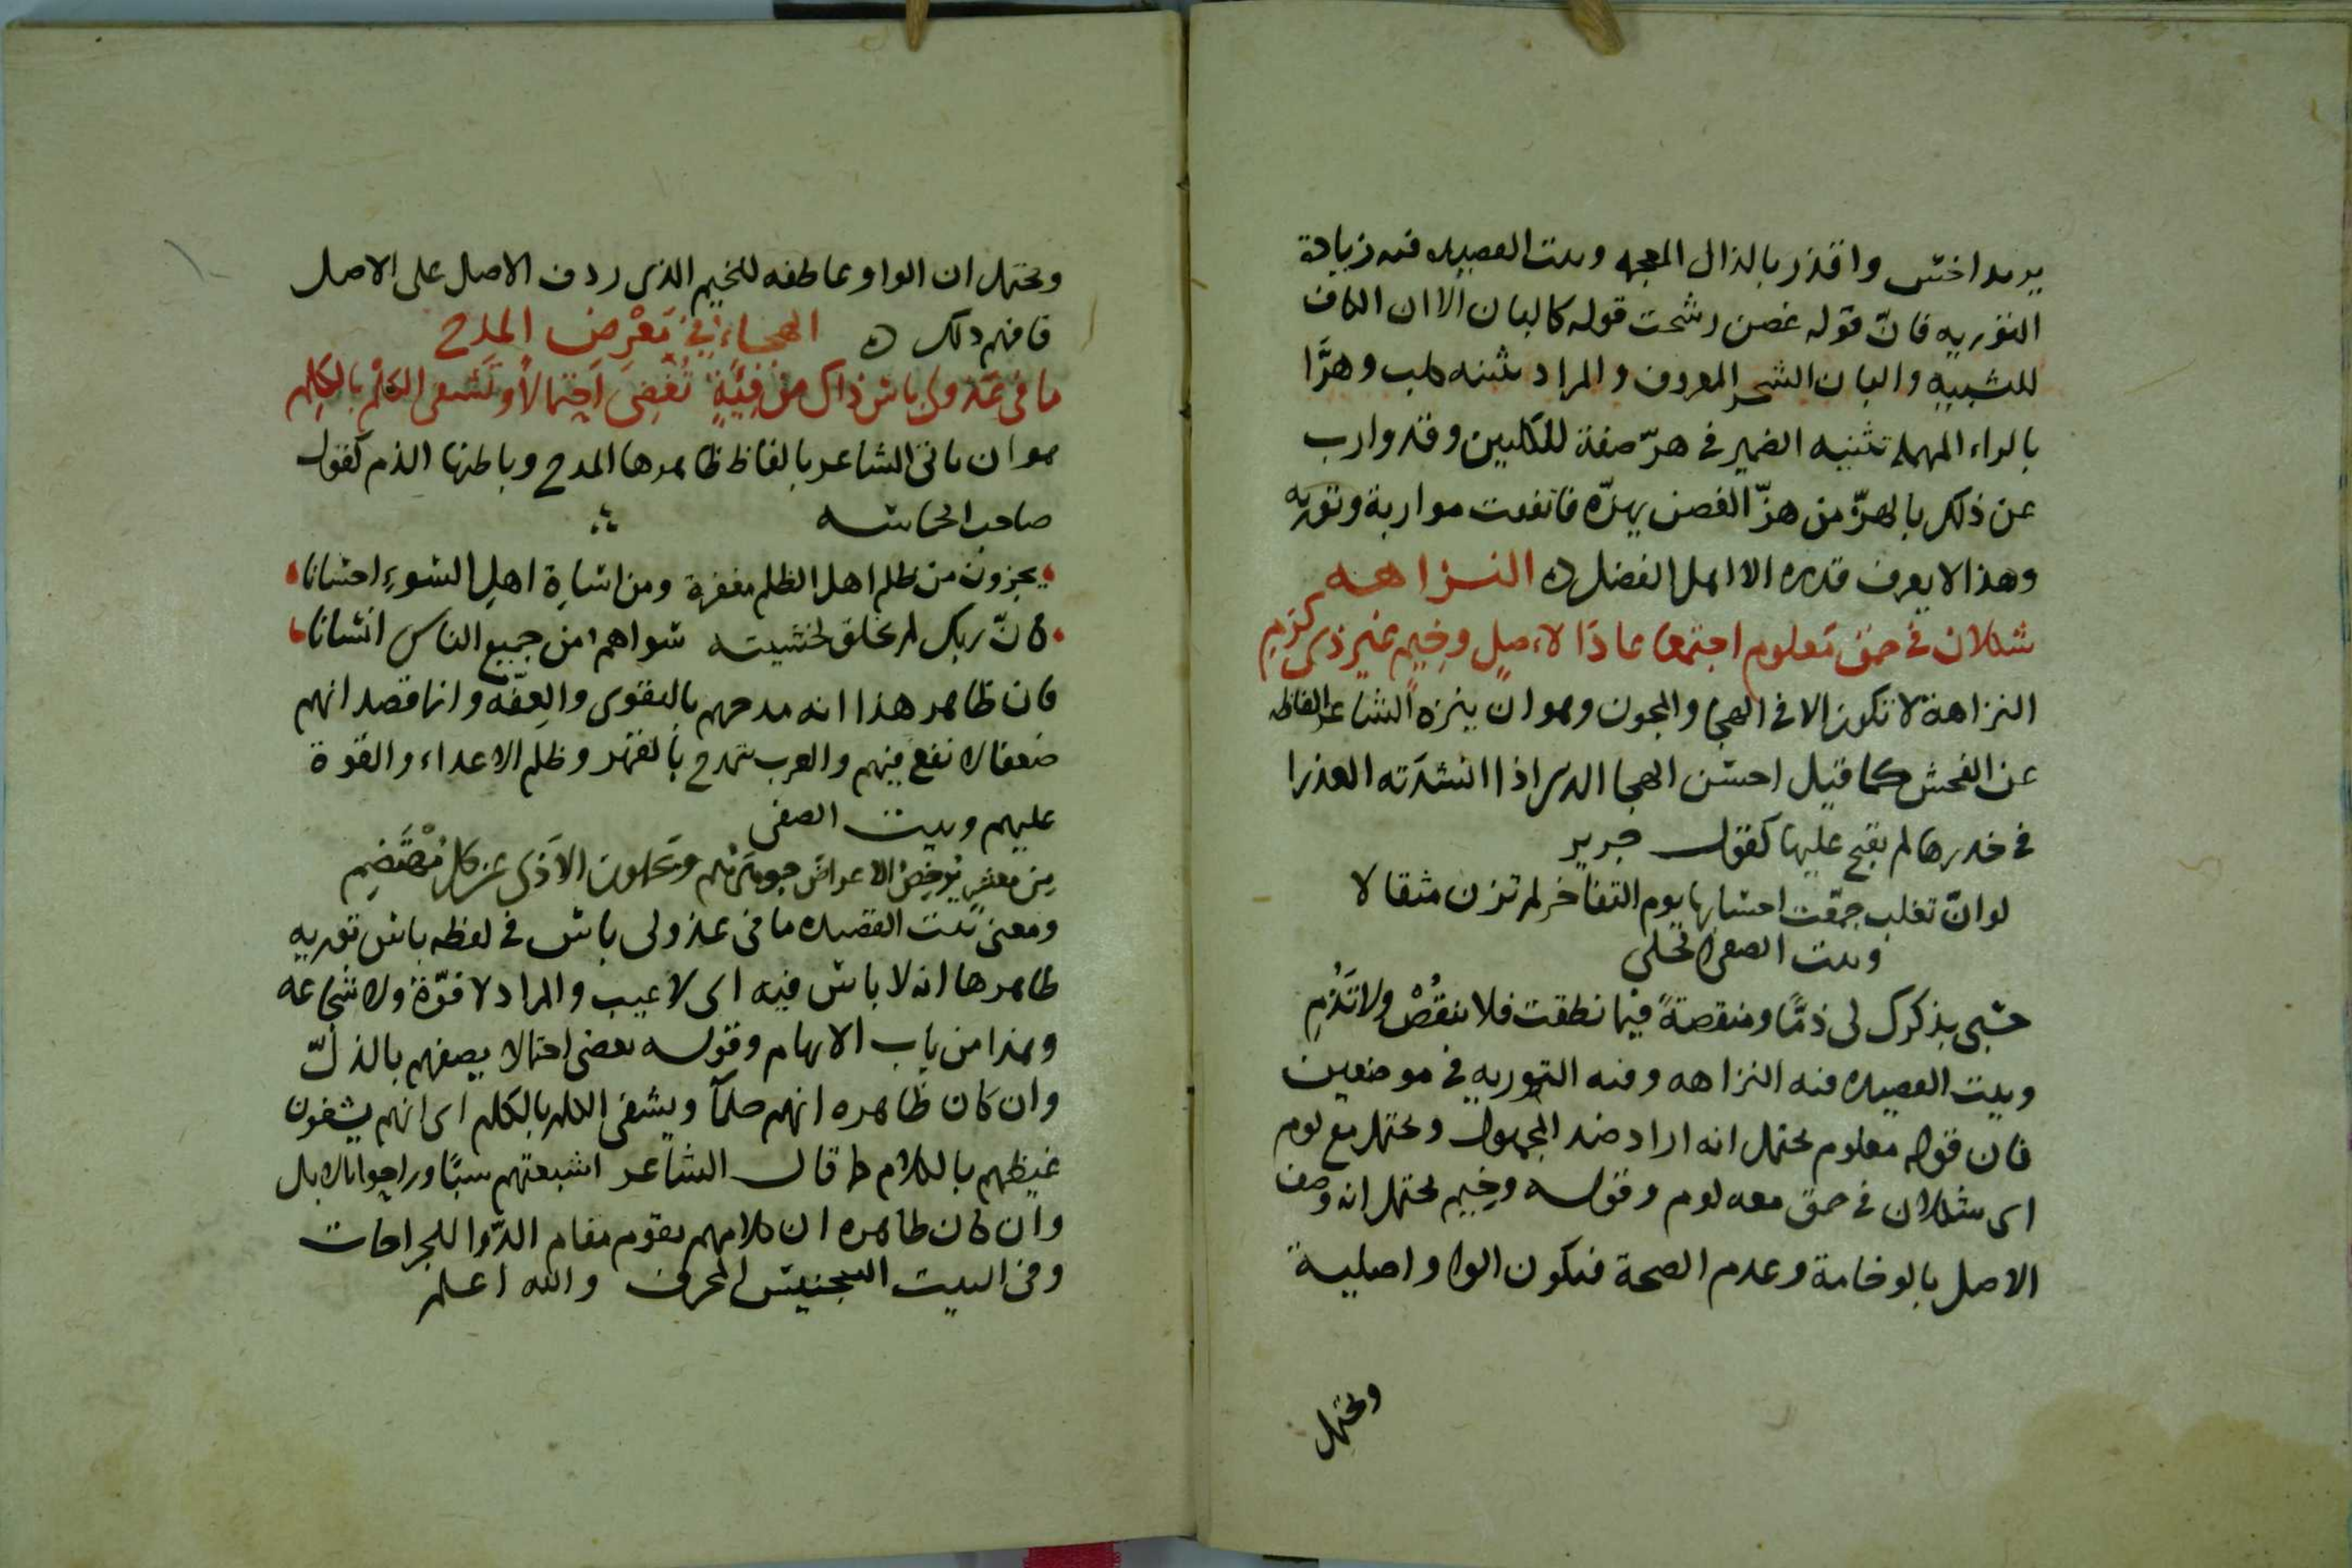 يريد اخس واقذر بالذال المعجمه وبيت القصيده فيه زيادة
التوريه فانّ قوله غصن رشحت قوله كالبان الا ان الكاف
للتشبيه والبان الشجر المعروف والمراد تثنيه كلب وهرَّا
بالراء المهمله تثنيه الضمير في هرّ صفة للكلبين وقد وارب
عن ذلك بالهزّ من هزّ الغصن يهزّه فاتفقت مواربة وتوريه
وهذا لا يعرف قدره الا اهل الفضل ه النزاهه
شكلان في حمق معلوم اجتمعا عاذا لاصلٍ وخيمٍ غير ذي كرمِ
النزاهة لا تكون الا في الهجا والمجون وهو ان ينزه الشاعر الفاظه
عن الفحش كما قيل احسن الهجا الذي اذا انشدَته العذرا
في خدرها لم يقبح عليها كقول جرير
لو انّ تغلب جمّعت احسابها يوم التفاخر لم تزن مثقالا
وبيت الصفي الحلي
حسبي بذكرك لي ذمًّا ومنقصةً فيما نطقت فلا تنقُصْ ولا تَذُمِ
وبيت القصيده فيه النزاهه وفيه التوريه في موضعين
فان قوله معلوم يحتمل انه اراد ضد المجهول ويحتمل مع لوم
اي شكلان في حمق معه لوم وقوله وخيم يحتمل انه وصف
الاصل بالوخامة وعدم الصحة فيكون الواو اصلية
ويحتمل
ويحتمل ان الواو عاطفه للخيم الذي ردف الاصل على الاصل
فافهم ذلك ه الهجاء في مَعْرض المدح
ما في عذولي باس ذاك من فِئةٍ تُغضِي احتمالاً وتَشفي الكَلْم بالكلِمِ
هو ان ياتي الشاعر بالفاظ ظاهرها المدح وباطنها الذم كقول
صاحب الحماسه
يجزون من ظلم اهل الظلم مغفرة ومن اساءة اهل السوءِ احسانا
كانّ ربك لم يخلق لخشيته سواهم من جميع الناس انسانا
فان ظاهر هذا انه مدحهم بالتقوى والعِفّه وانما قصد انهم
ضعفا لا نفع فيهم والعرب تتمدح بالقهر وظلم الاعداء والقوة
عليهم وبيت الصفي
مِن معشرٍ يُرخِصُ الاعراضَ جوهرُهم ويَحملون الاَذى عن كل مُهْتَضِمِ
ومعنى بيت القصيده ما في عذولي باس في لفظه باس توريه
ظاهرها انه لا باس فيه اي لا عيب والمراد لا قوّة ولا شجاعه
وهذا من باب الابهام وقوله تغضي احتمالا يصفهم بالذلّ
وان كان ظاهره انهم حلمآ ويشفى الكلم بالكلم اي انهم يشفون
غيظهم بالكلام كما قال الشاعر اشبعتهم سبًا وراحوا بالابل
وان كان ظاهره ان كلامهم يقوم مقام الدّوا للجراحات
وفي البيت التجنيس المحرف والله اعلم